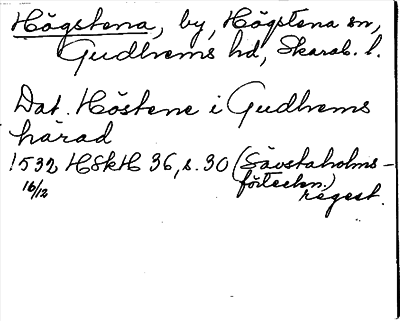 Högstena, by, Högstena sn,
Gudhems hd, Skarab. l.
Dat. Höstene i Gudhems
härad
1532 HSkH 36, s. 30 (Sävstaholms-
16/12 förteckn.)
regest.